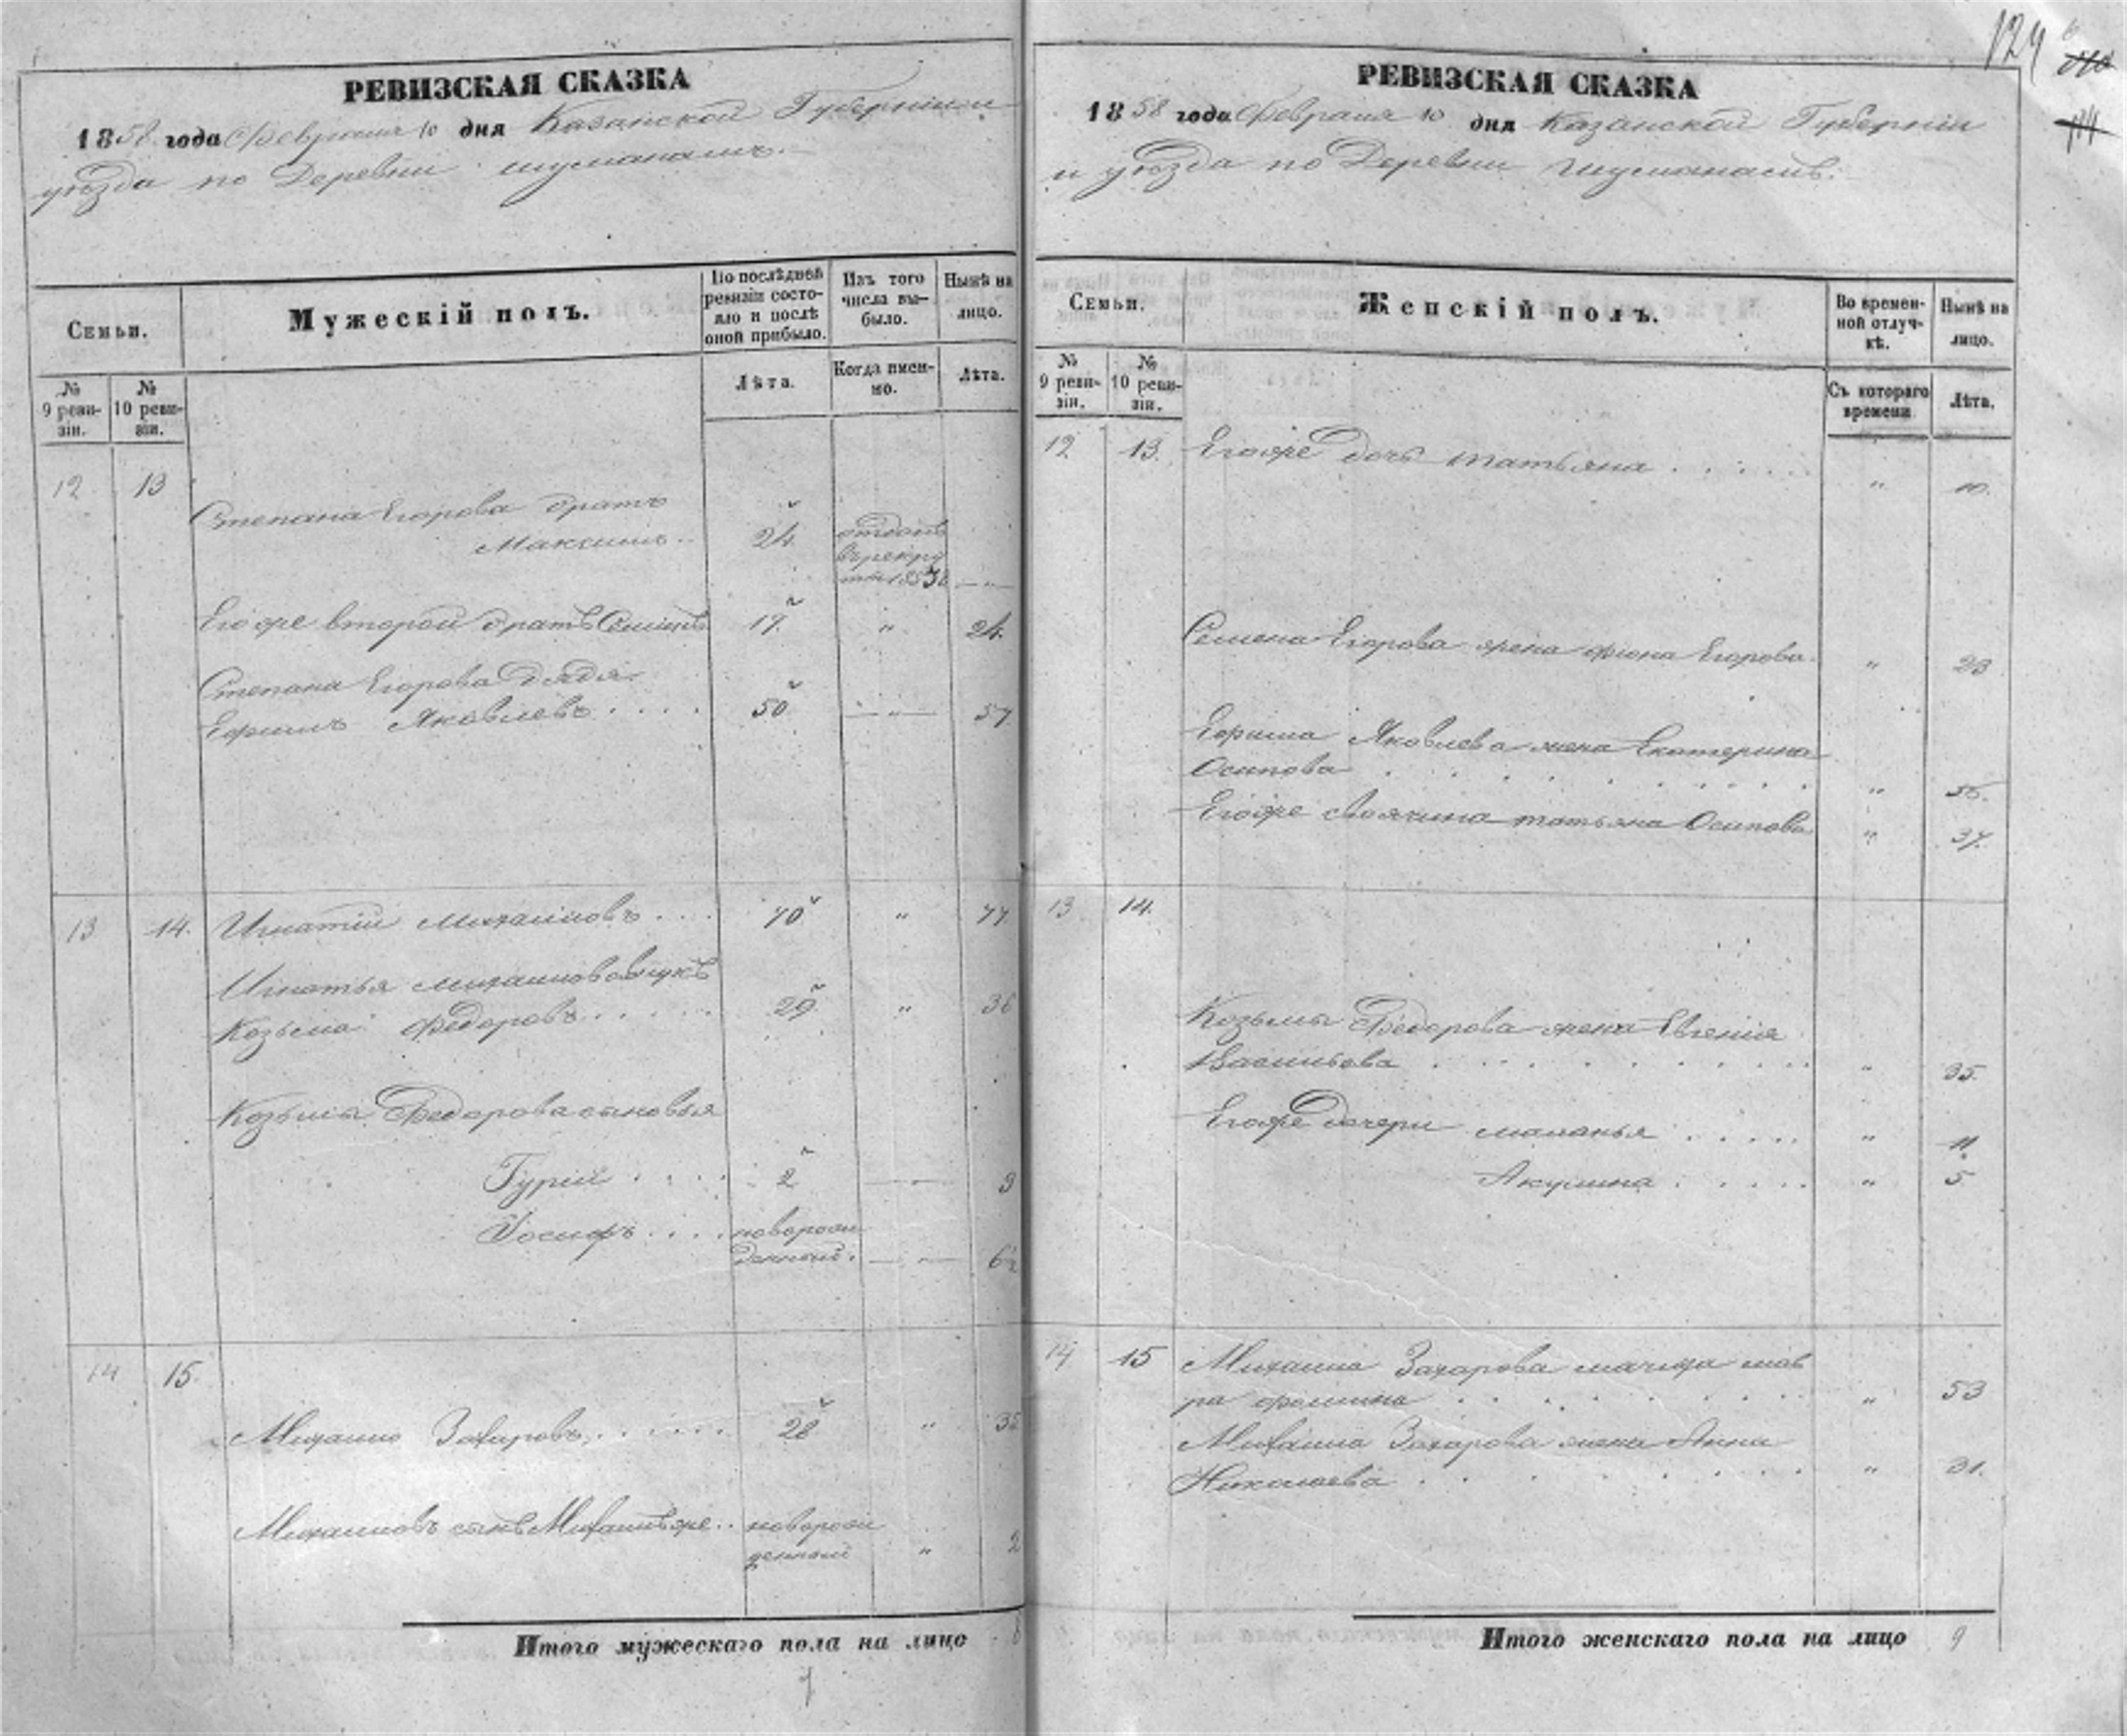 РЕВИЗСКАЯ СКАЗКА
1858 года Февраля 10 дня Казанской Губернии и
уѣзда по Деревни шуманамъ.
Семьи.
Мужескій полъ.
По послѣдней ревизіи состояло и послѣ оной прибыло.
Изъ того числа выбыло.
Нынѣ на лицо.
№ 9 ревизіи.
№ 10 ревизіи.
Лѣта.
Когда именно.
Лѣта.
12 13
Степана Егорова братъ
Максимъ 24 отданъ
въ рекру
ты 185
Егоже второй братъ Семенъ 17 " 24.
Степана Егорова дядя
Ефимъ Яковлевъ 50 " 57
13 14. Игнатій Михаиловъ 70 " 77
Игнатья Михаилова внукъ
Козьма Федоровъ 29 " 36
Козьмы Федорова сыновья
Гурій 2 " 9
Іосифъ новорож
денный. " 6½
14 15.
Михаило Захаровъ 28 " 35
Михаиловъ сынъ Михаилъ же новорож
денный " 2
Итого мужескаго пола на лицо
7
124
РЕВИЗСКАЯ СКАЗКА
1858 года Февраля 10 дня Казанской Губерніи
и уѣзда по Деревни Шуманамъ.
Семьи.
Женскій полъ.
Во временной отлучкѣ.
Нынѣ на лицо.
№ 9 ревизіи.
№ 10 ревизіи.
Съ котораго времени
Лѣта.
12 13. Егоже дочь татьяна "
Семена Егорова жена Егорова " 23
Ефима Яковлева жена Екатерина
Осипова " 56.
Егоже татьяна Осипова " 37.
13 14.
Козьмы Федорова жена Евгенія
Васильева " 35.
Егоже дочери маланья " 11
Акулина " 5
14 15 Михаила Захарова мачиха мав
ра фомина " 53
Михаила Захарова жена Анна
Николаева " 31.
Итого женскаго пола на лицо 9